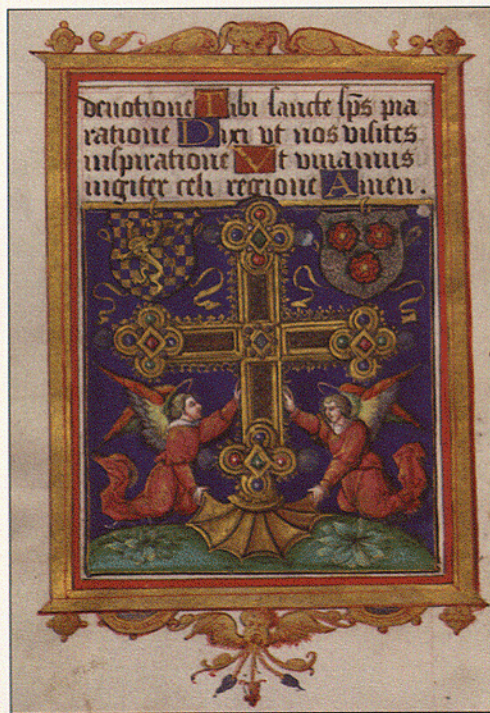 deuotione Tibi ſancte ſps pia
ratione Dixi vt nos viſites
inſpiratione Vt viuamus
iugiter celi regione Amen .